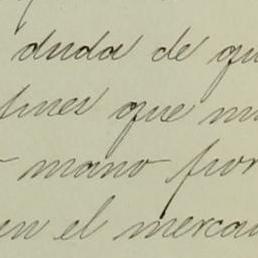 duda de qu
fines que mu
mano por
en el merca